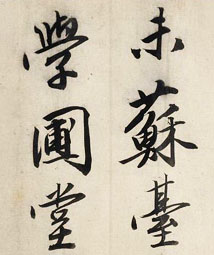 未蘇臺
學圃堂